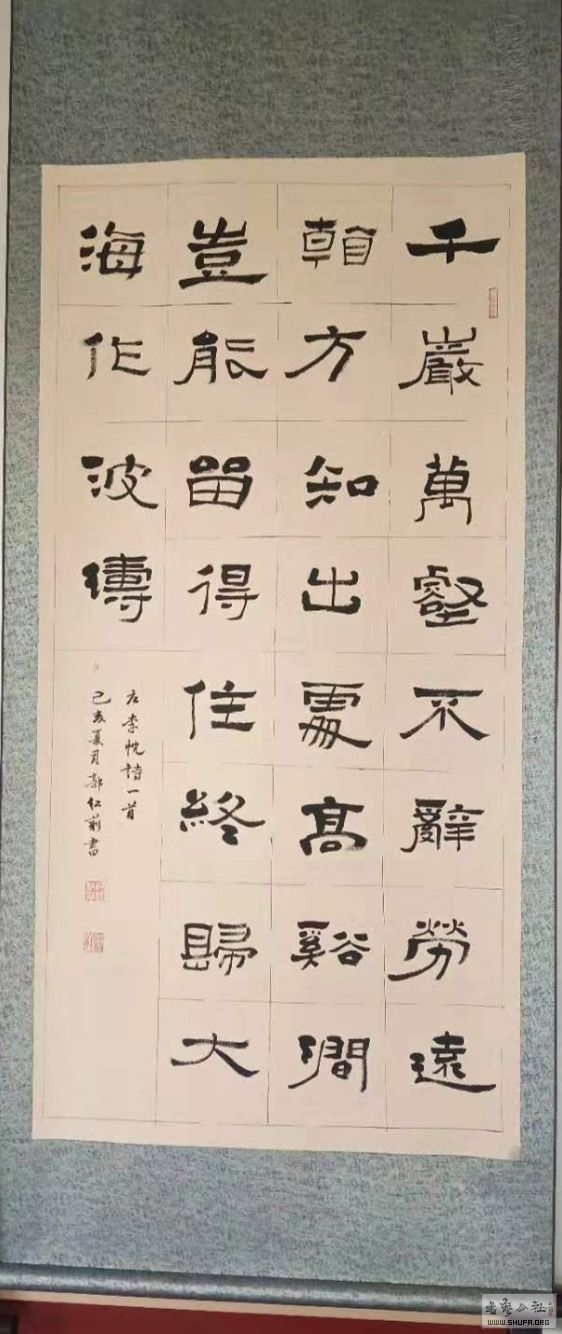 千巖萬壑不辭勞遠
看方知出處高谿澗
豈能留得住終歸大
海作波濤
右李忱詩一首
己亥夏月郭红莉書
書藝公社
WWW.SHUFA.ORG